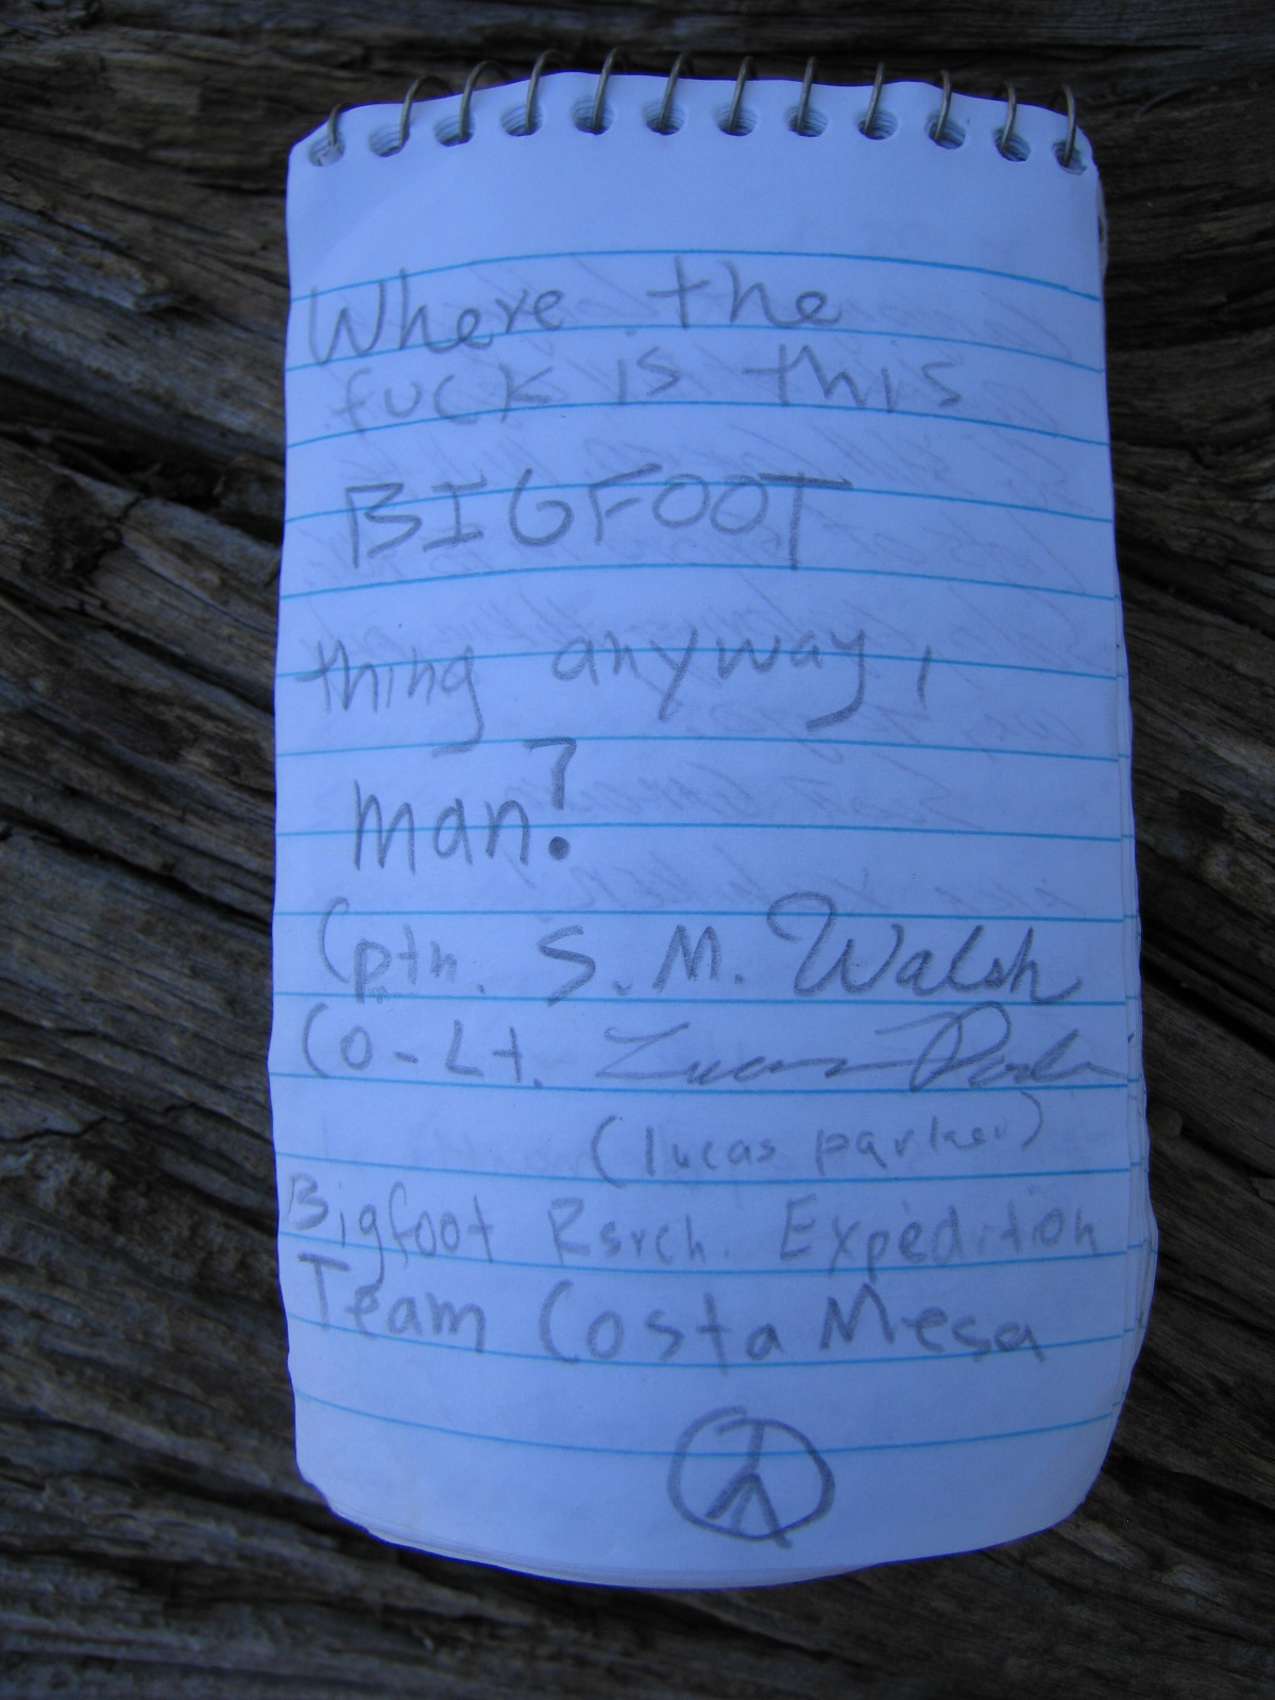 Where the
fuck is this
BIGFOOT
thing anyway,
man?
Cptn. S. M. Walsh
Co-Lt. Lucas Parker
(lucas parker)
Bigfoot Rsrch. Expedition
Team Costa Mesa